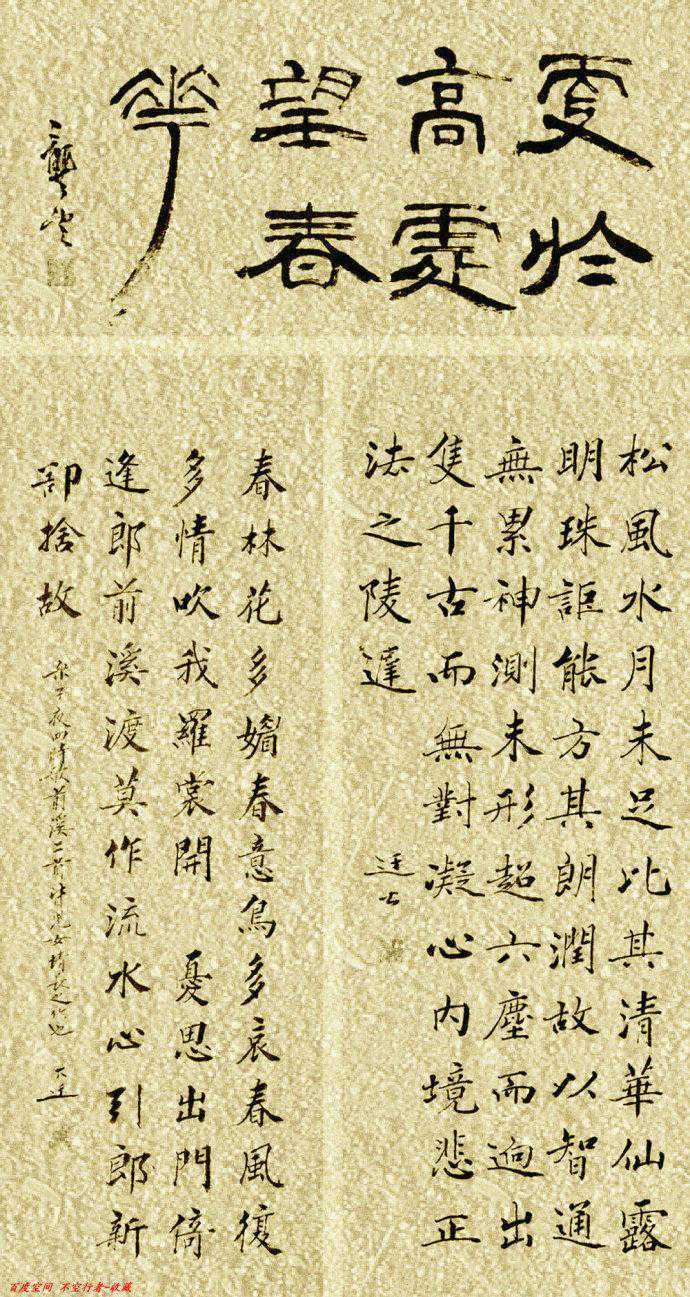 更於
高處
望春
華
龔望
松風水月未足比其清華仙露
明珠詎能方其朗潤故以智通
無累神測未形超六塵而迥出
隻千古而無對凝心內境悲正
法之陵遲
春林花多媚春意鳥多哀春風復
多情吹我羅裳開 憂思出門倚
逢郎前溪渡莫作流水心引郎新
都捨故
子夜四時歌前溪二首
百度空间 不空行者-收藏